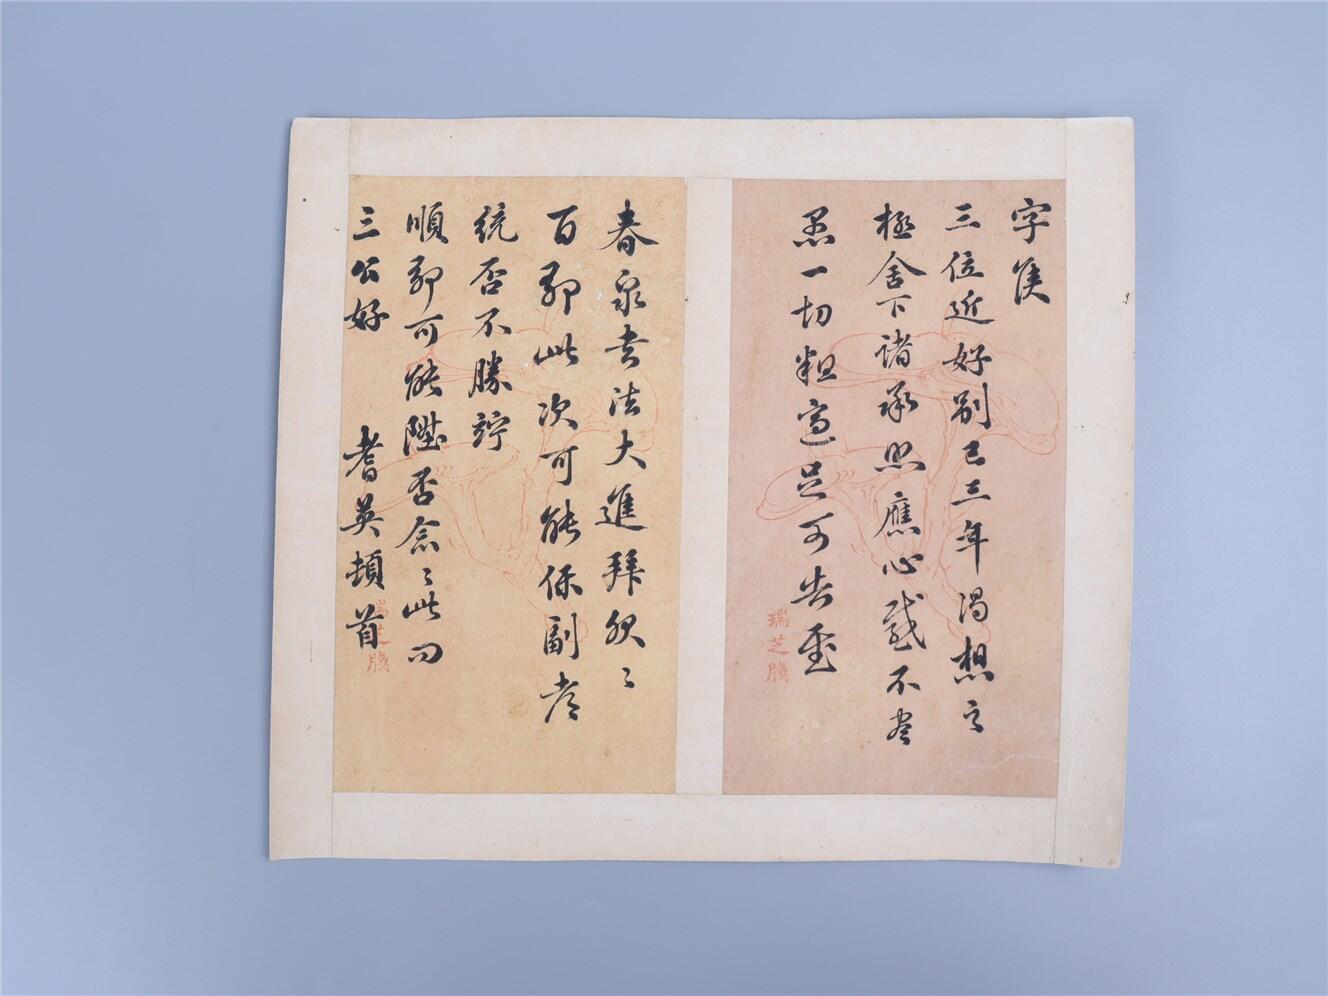 字候
三位近好別已三年渴想之
極舍下諸承照應心感不盡
愚一切粗適足可告慰
瑞芝牋
春泉書法大進拜服〻
百即此次可能保副考
統否不勝
順卿可能陞否念〻此問
三公好 耆英頓首
瑞芝牋